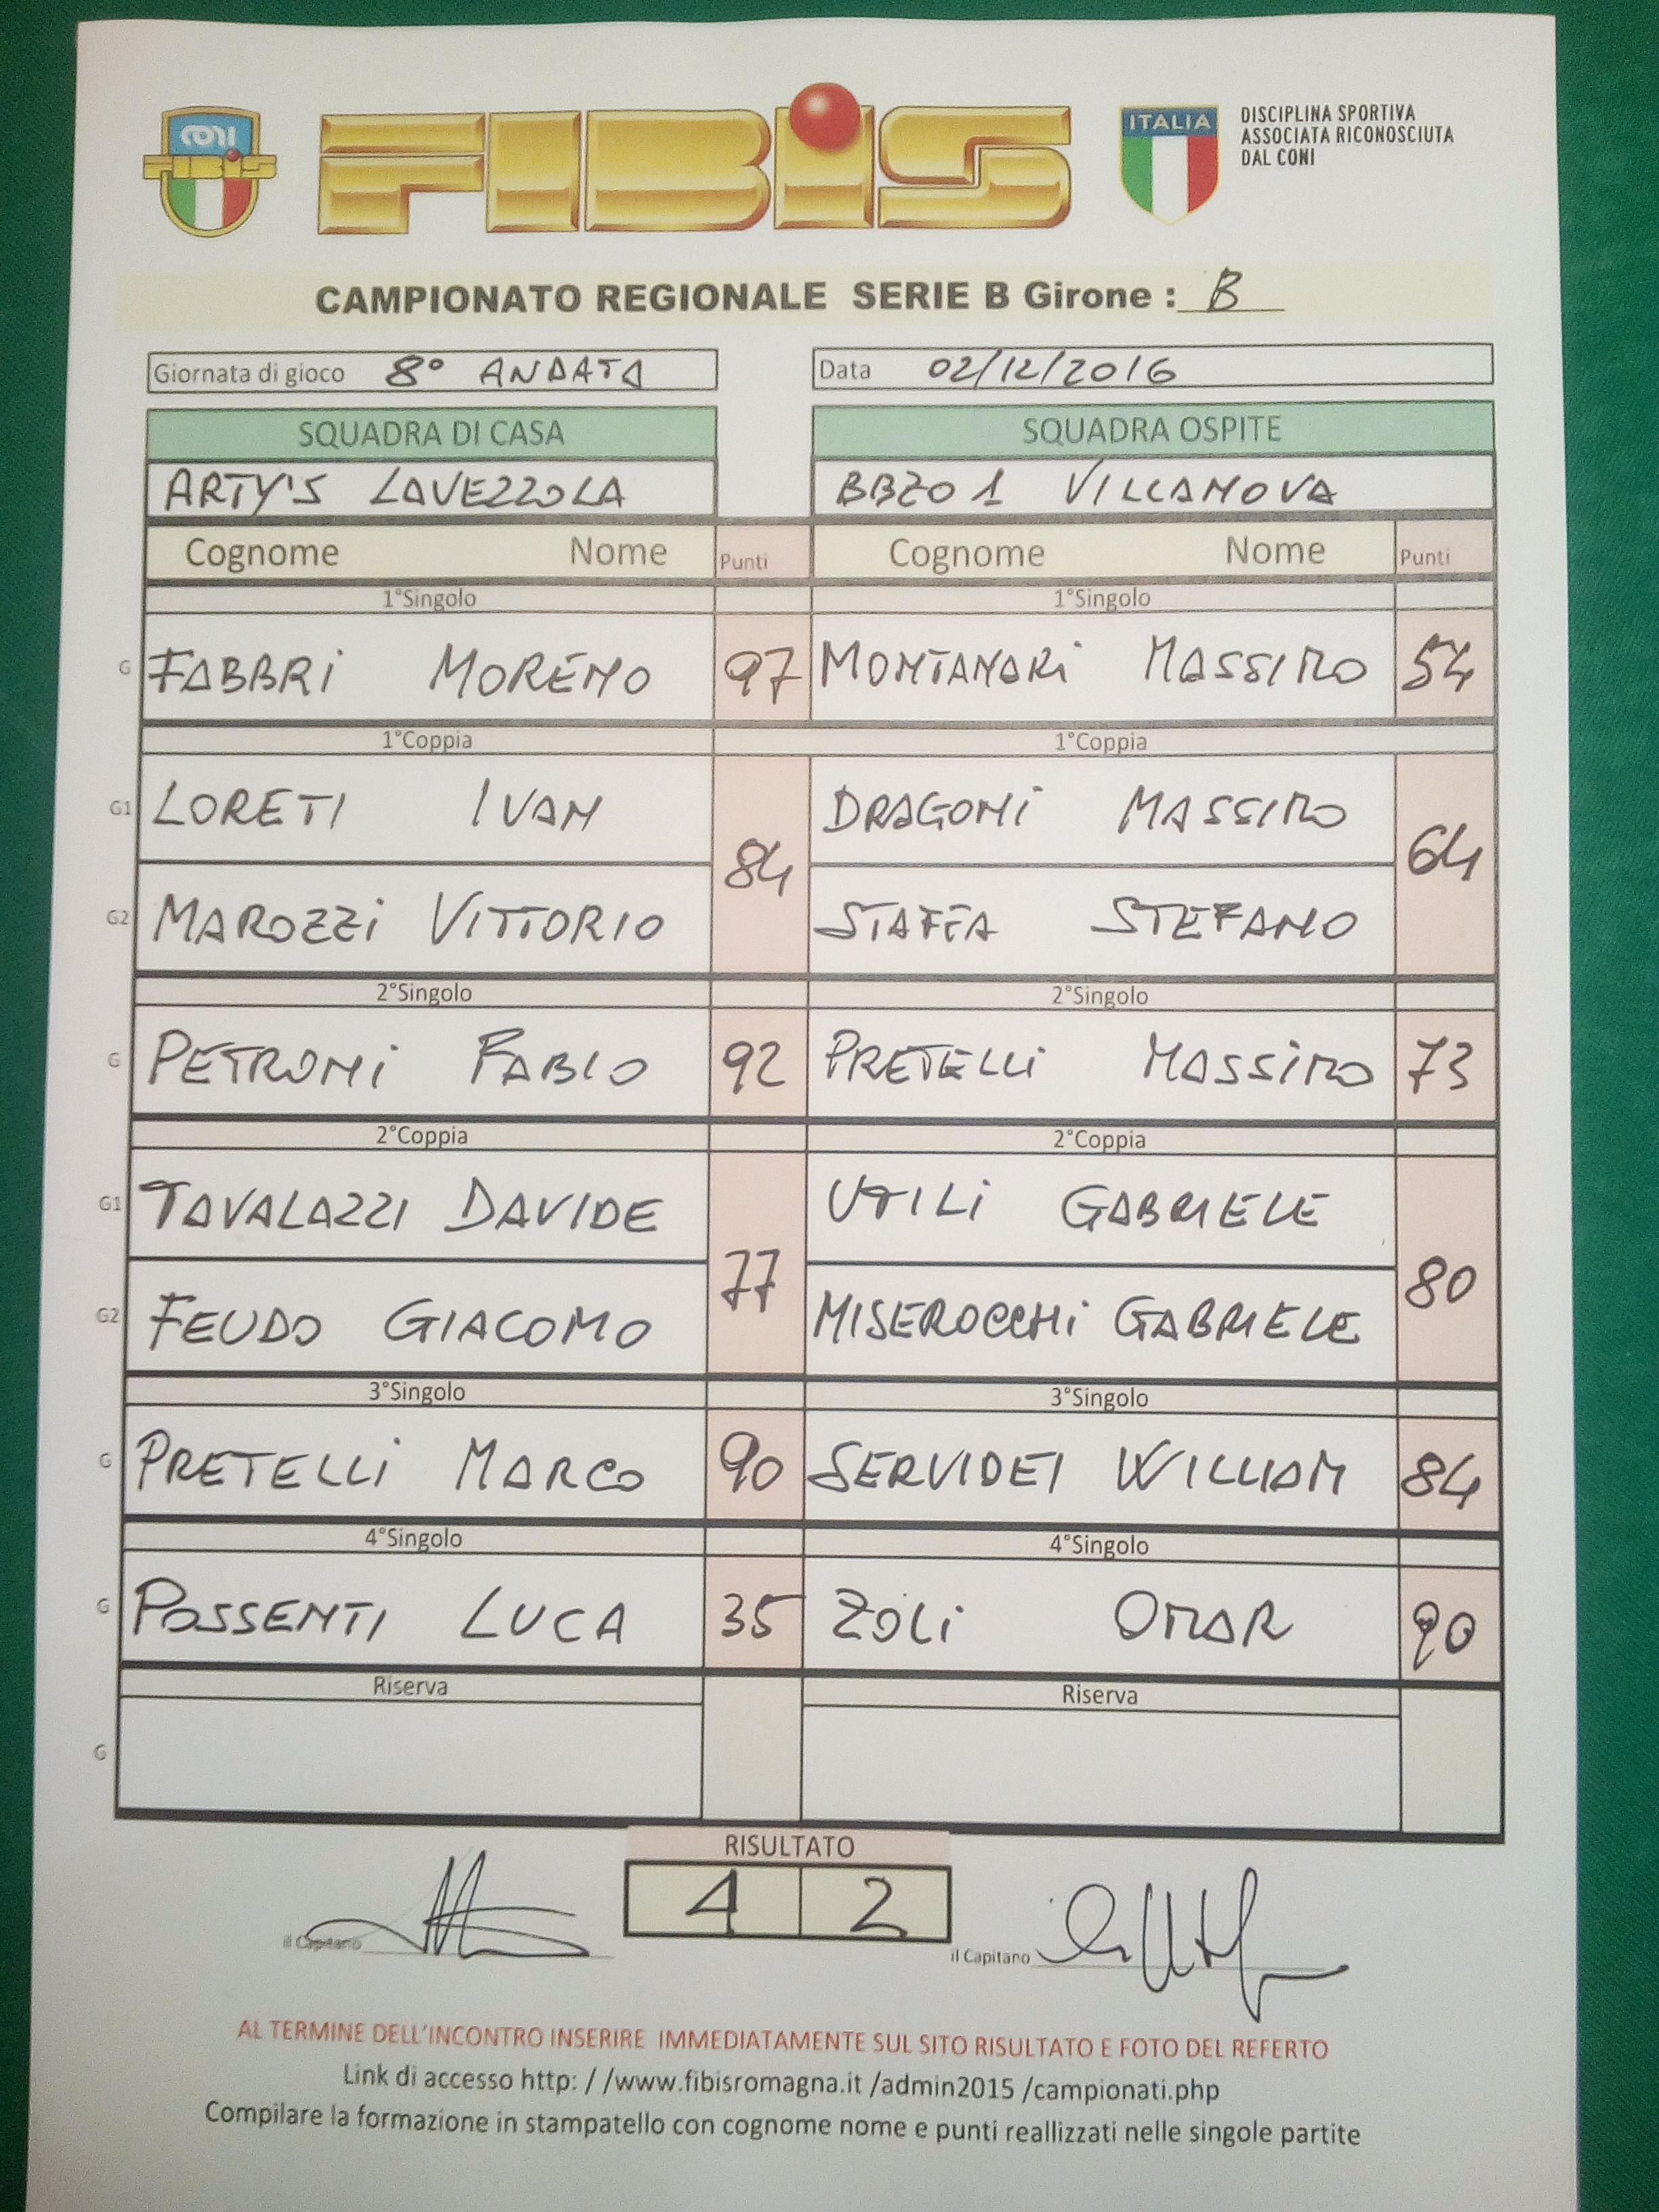 CONI
FIBIS
FIBIS
ITALIA
DISCIPLINA SPORTIVA
ASSOCIATA RICONOSCIUTA
DAL CONI
CAMPIONATO REGIONALE SERIE B Girone : B
Giornata di gioco 8° ANDATA Data 02/12/2016
SQUADRA DI CASA SQUADRA OSPITE
ARTY'S LAVEZZOLA BBZO 1 VILLANOVA
Cognome Nome Punti Cognome Nome Punti
1°Singolo 1°Singolo
G FABBRI MORENO 97 MONTANARI MASSIMO 54
1°Coppia 1°Coppia
G1 LORETI IVAN DRAGONI MASSIMO
84 64
G2 MAROZZI VITTORIO STAFFA STEFANO
2°Singolo 2°Singolo
G PETRONI FABIO 92 PRETELLI MASSIMO 73
2°Coppia 2°Coppia
G1 TAVALAZZI DAVIDE UTILI GABRIELE
77 80
G2 FEUDO GIACOMO MISEROCCHI GABRIELE
3°Singolo 3°Singolo
G PRETELLI MARCO 90 SERVIDEI WILLIAM 84
4°Singolo 4°Singolo
G POSSENTI LUCA 35 ZOLI OMAR 90
Riserva Riserva
G
RISULTATO
4 2
il Capitano il Capitano
AL TERMINE DELL'INCONTRO INSERIRE IMMEDIATAMENTE SUL SITO RISULTATO E FOTO DEL REFERTO
Link di accesso http: / /www.fibisromagna.it /admin2015 /campionati.php
Compilare la formazione in stampatello con cognome nome e punti reallizzati nelle singole partite